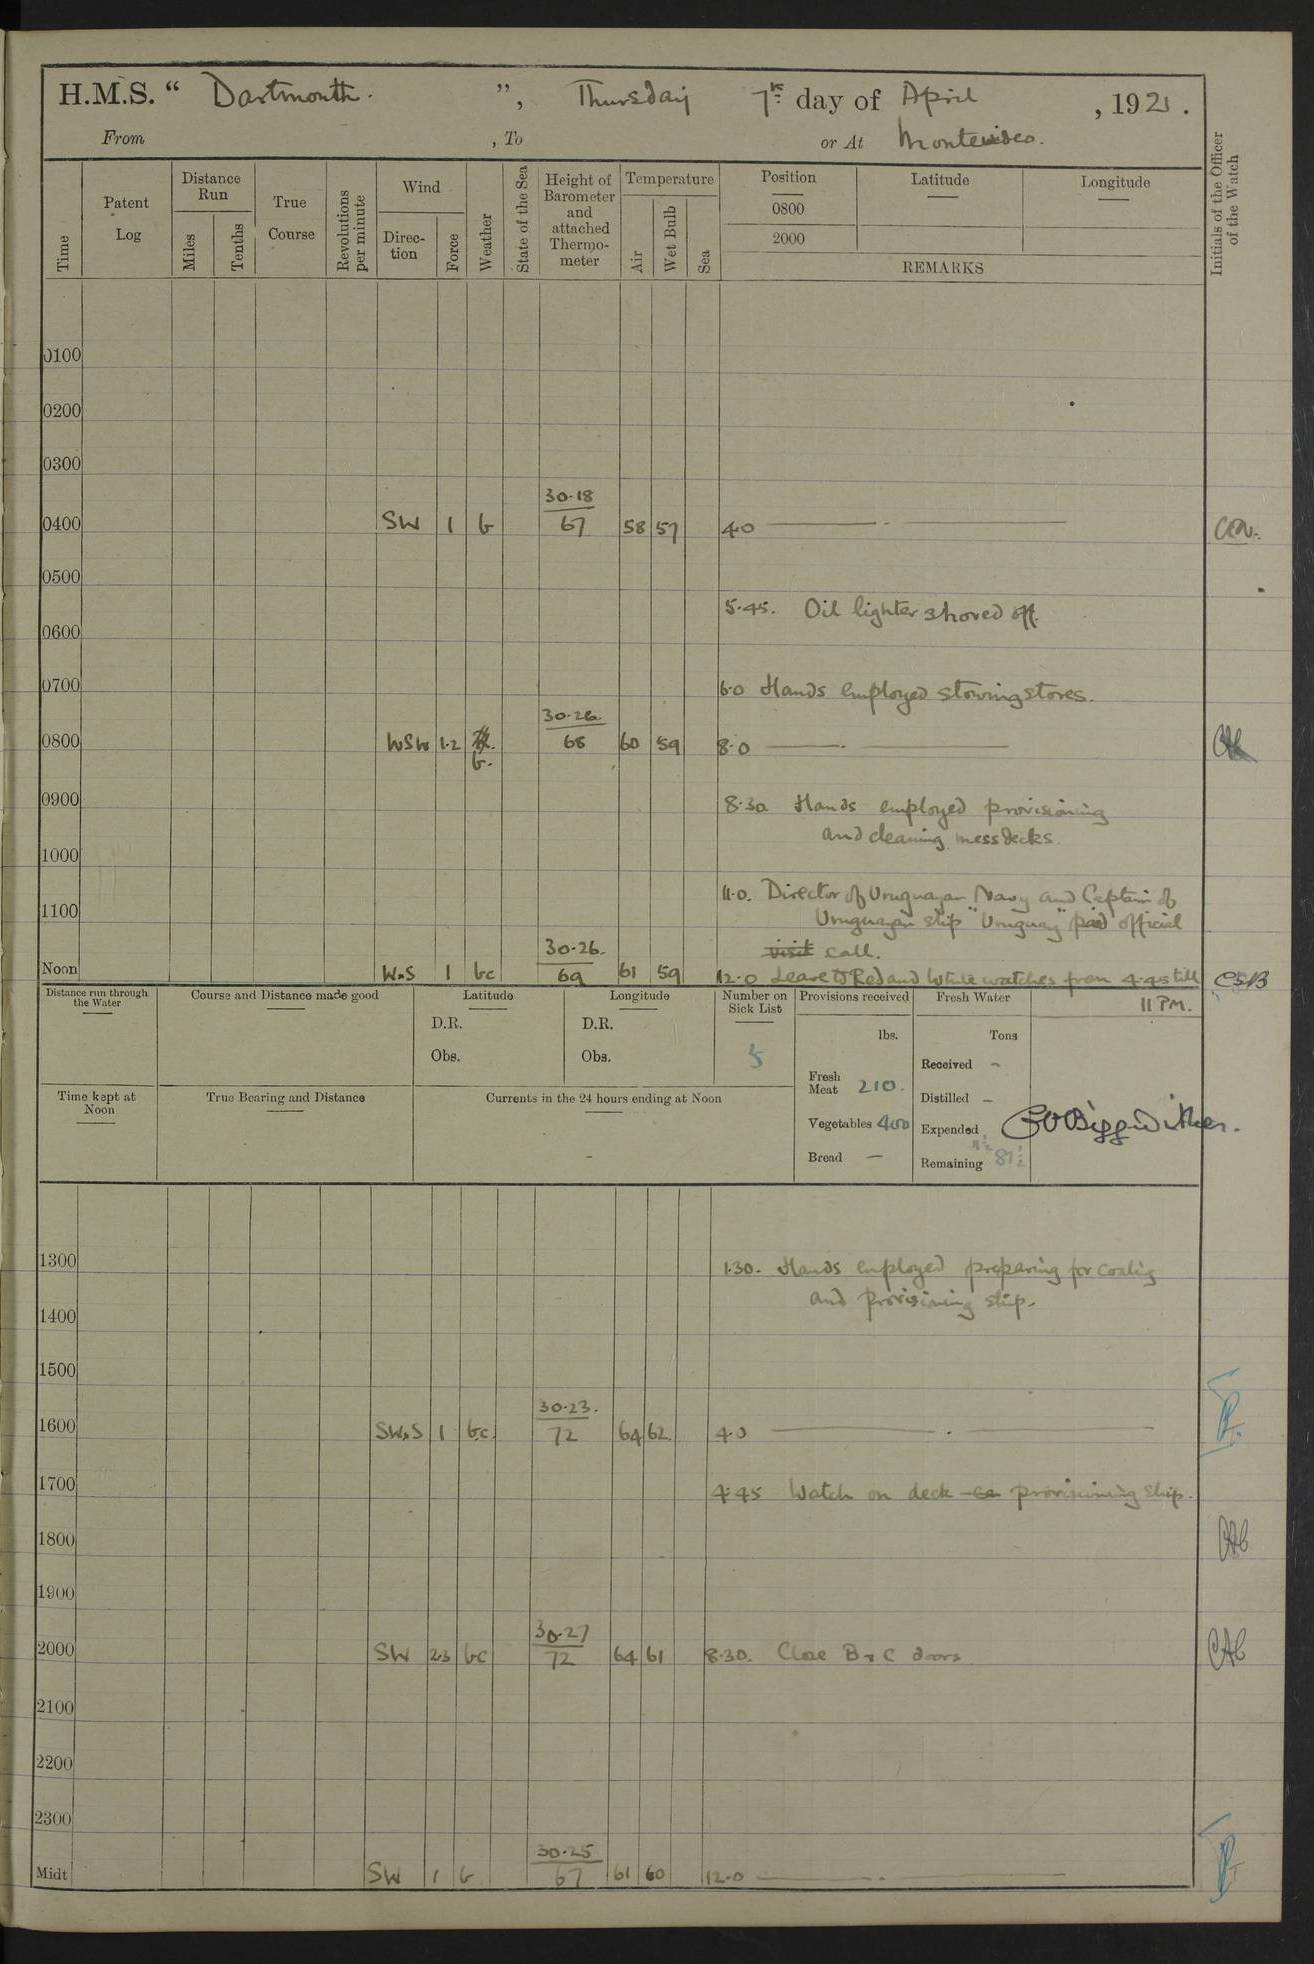 H.M.S. “ Dartmouth. ”, Thursday 7th day of April , 1921.
From , To or At Montevideo.
Time
Patent Log
Distance Run
Miles
Tenths
True Course
Revolutions per minute
Wind
Direction
Force
Weather
State of the Sea
Height of Barometer and attached Thermometer
Temperature
Air
Wet Bulb
Sea
Position Latitude Longitude
0800
2000
REMARKS
Initials of the Officer of the Watch
0100
0200
0300
30.18
0400 SW 1 b 67 58 57 4.0
0500
5.45. Oil lighter shoved off.
0600
0700 6.0 Hands employed stowing stores.
30.26
0800 WSW 1.2 b. 68 60 59 8.0
0900 8.30 Hands employed provisioning
and cleaning messdecks.
1000
11.0. Director of Uruguayan Navy and Captain of
1100 Uruguayan ship "Uruguay" paid official
30.26. visit call.
Noon W.S 1 bc 69 61 59 12.0 Leave to Red and White watches from 4.45 till CSB
11 PM.
Distance run through the Water
Course and Distance made good
Latitude
D.R.
Obs.
Longitude
D.R.
Obs.
Number on Sick List
5
Provisions received
lbs.
Fresh Meat 210.
Vegetables 400
Bread —
Fresh Water
Tons
Received -
Distilled -
Expended
Remaining 81½
Time kept at Noon
True Bearing and Distance
Currents in the 24 hours ending at Noon
-
1300 1.30. Hands employed preparing for coaling
and provisioning ship.
1400
1500
30.23.
1600 SW.S 1 bc 72 64 62 4.0
1700 4.45 Watch on deck provisioning ship.
1800
1900
30.27
2000 SW 2.3 bc 72 64 61 8.30. Close B & C doors
2100
2200
2300
30.25
Midt SW 1 b 67 61 60 12.0